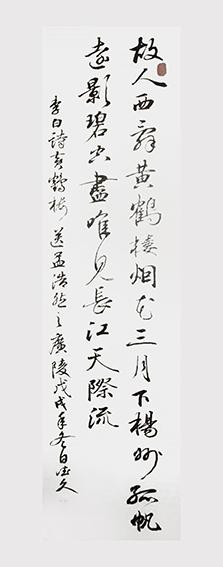 故人西辞黄鶴楼烟花三月下楊州孤帆
遠影碧空盡唯見長江天際流
李白詩黄鶴楼送孟浩然之廣陵戊戌年冬日